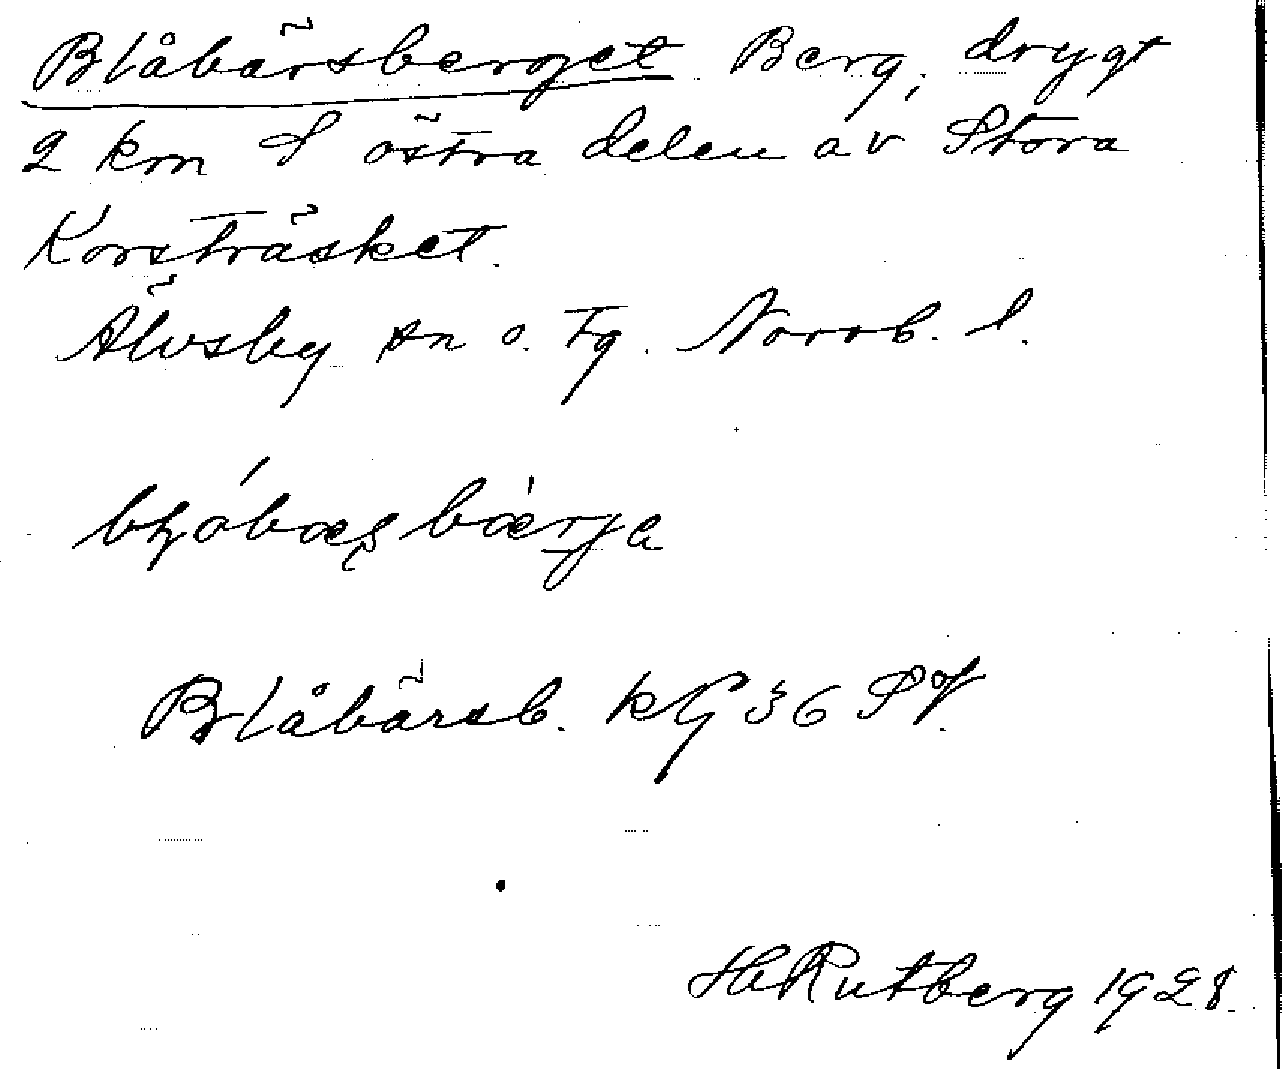 Blåbärsberget Berg, drygt
2 km S östra delen av Stora
Korsträsket.
Älvsby sn o. tg. Norrb. l.
Blåbärsb. kG 36 SV.
HRutberg 1928.